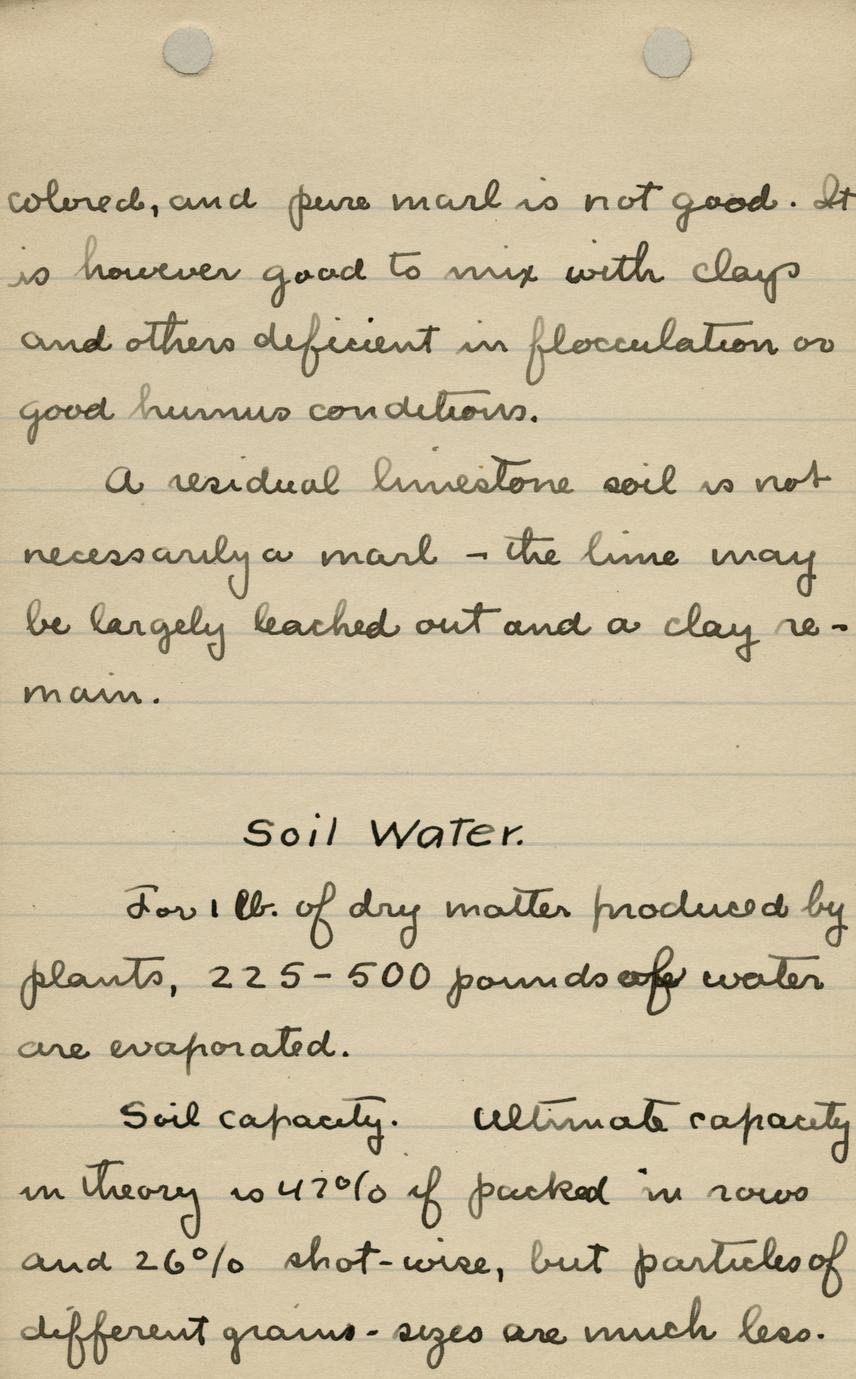 colored, and pure marl is not good. It
is however good to mix with clays
and others deficient in flocculation or
good humus conditions.
A residual limestone soil is not
necessarily a marl - the lime may
be largely leached out and a clay re-
main.
Soil Water.
For 1 lb. of dry matter produced by
plants, 225-500 pounds of water
are evaporated.
Soil capacity. Ultimate capacity
in theory is 47% if packed in rows
and 26% shot-wise, but particles of
different grains-sizes are much less.